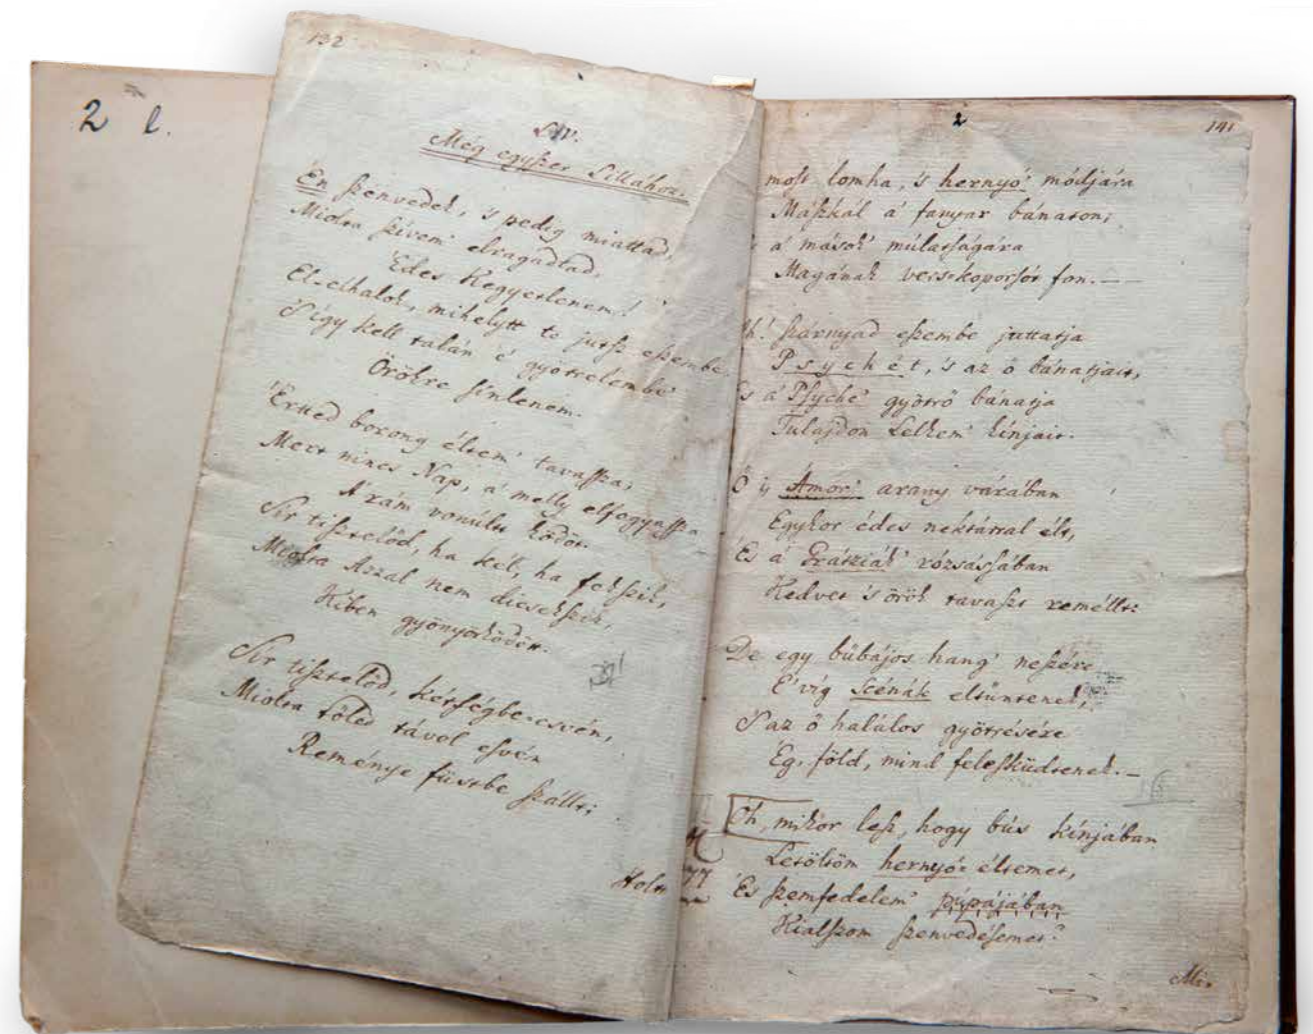 2 l.
132
LIV.
Még egyſzer Lillához.
Én ſzenvedek, 's pedig miattad,
Miólta ſzívem' elragadtad,
Édes Kegyetlenem!
El-elhalok, mihelytt te jutſz eſzembe
'S így kell talán é gyötrelembe'
Örökre ſínlenem.
Érted borong éltem' tavaſſza;
Mert nincs Nap, a' melly elfogyaſſza
A' rám vonúltt ködöt.
Sír tiſztelőd, ha kél, ha fekſzik,
Miólta Azzal nem dicsekſzik,
Kiben gyönyörködött.
Sír tiſztelőd, kétségbe-esvén,
Miólta tőled távol eſvén
Reménye füstbe ſzállt;
Holtt
2
141
most lomha, 's hernyó' módjára
Máſzkál a' fanyar bánaton,
a' mások' múlatságára
Magának vers-koporsót fon. — —
h! ſzárnyad eſzembe juttatja
Psychét, 's az ő bánatjait,
's a' Pſyche' gyötrő bánatja
Tulajdon Lelkem' kínjait.
Ő is Ámor' arany várában
Egykor édes nektárral élt,
És a' Grátziák' rózsásſában
Kedvet 's örök tavaſzt reméllt:
De egy bűbájos hang' neſzére
E' víg scénák eltüntenek,
'S az ő halálos gyötrésére
Ég, föld, mind feleſküdtenek. —
Oh, mikor leſz, hogy bús kínjában
Letöltöm hernyó-éltemet,
És ſzemfedelem' púpájában
Kialſzom ſzenvedéſemet?
Mi-